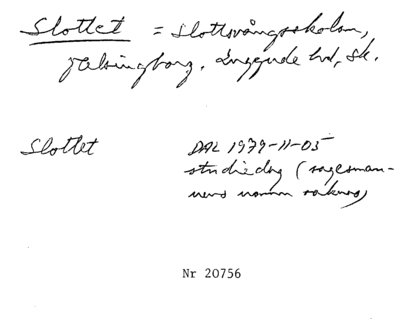 Slottet = Slottsvångsskolan,
Helsingborg. Luggude hd, Sk.
Slottet DAL 1979-11-05
studiedag (sagesman-
nens namn saknas)
Nr 20756